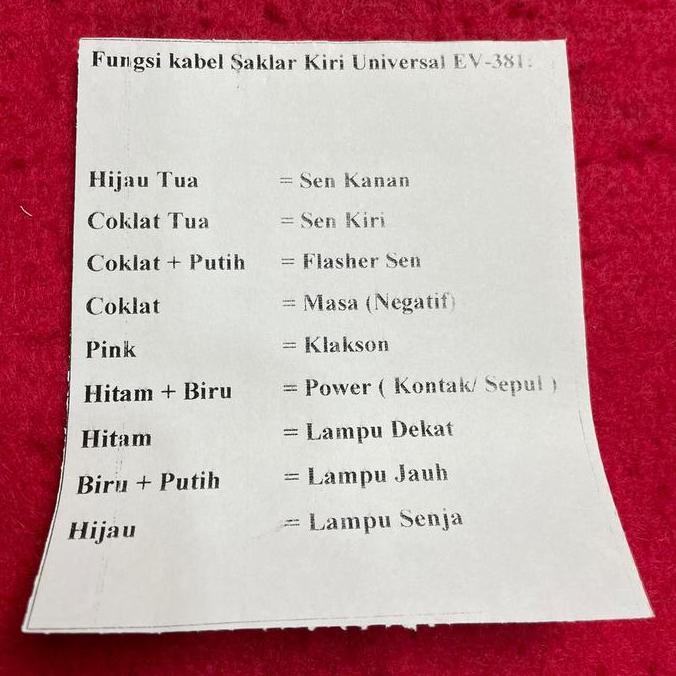 Fungsi kabel Saklar Kiri Universal EV-381:
Hijau Tua = Sen Kanan
Coklat Tua = Sen Kiri
Coklat + Putih = Flasher Sen
Coklat = Masa (Negatif)
Pink = Klakson
Hitam + Biru = Power ( Kontak/ Sepul )
Hitam = Lampu Dekat
Biru + Putih = Lampu Jauh
Hijau = Lampu Senja